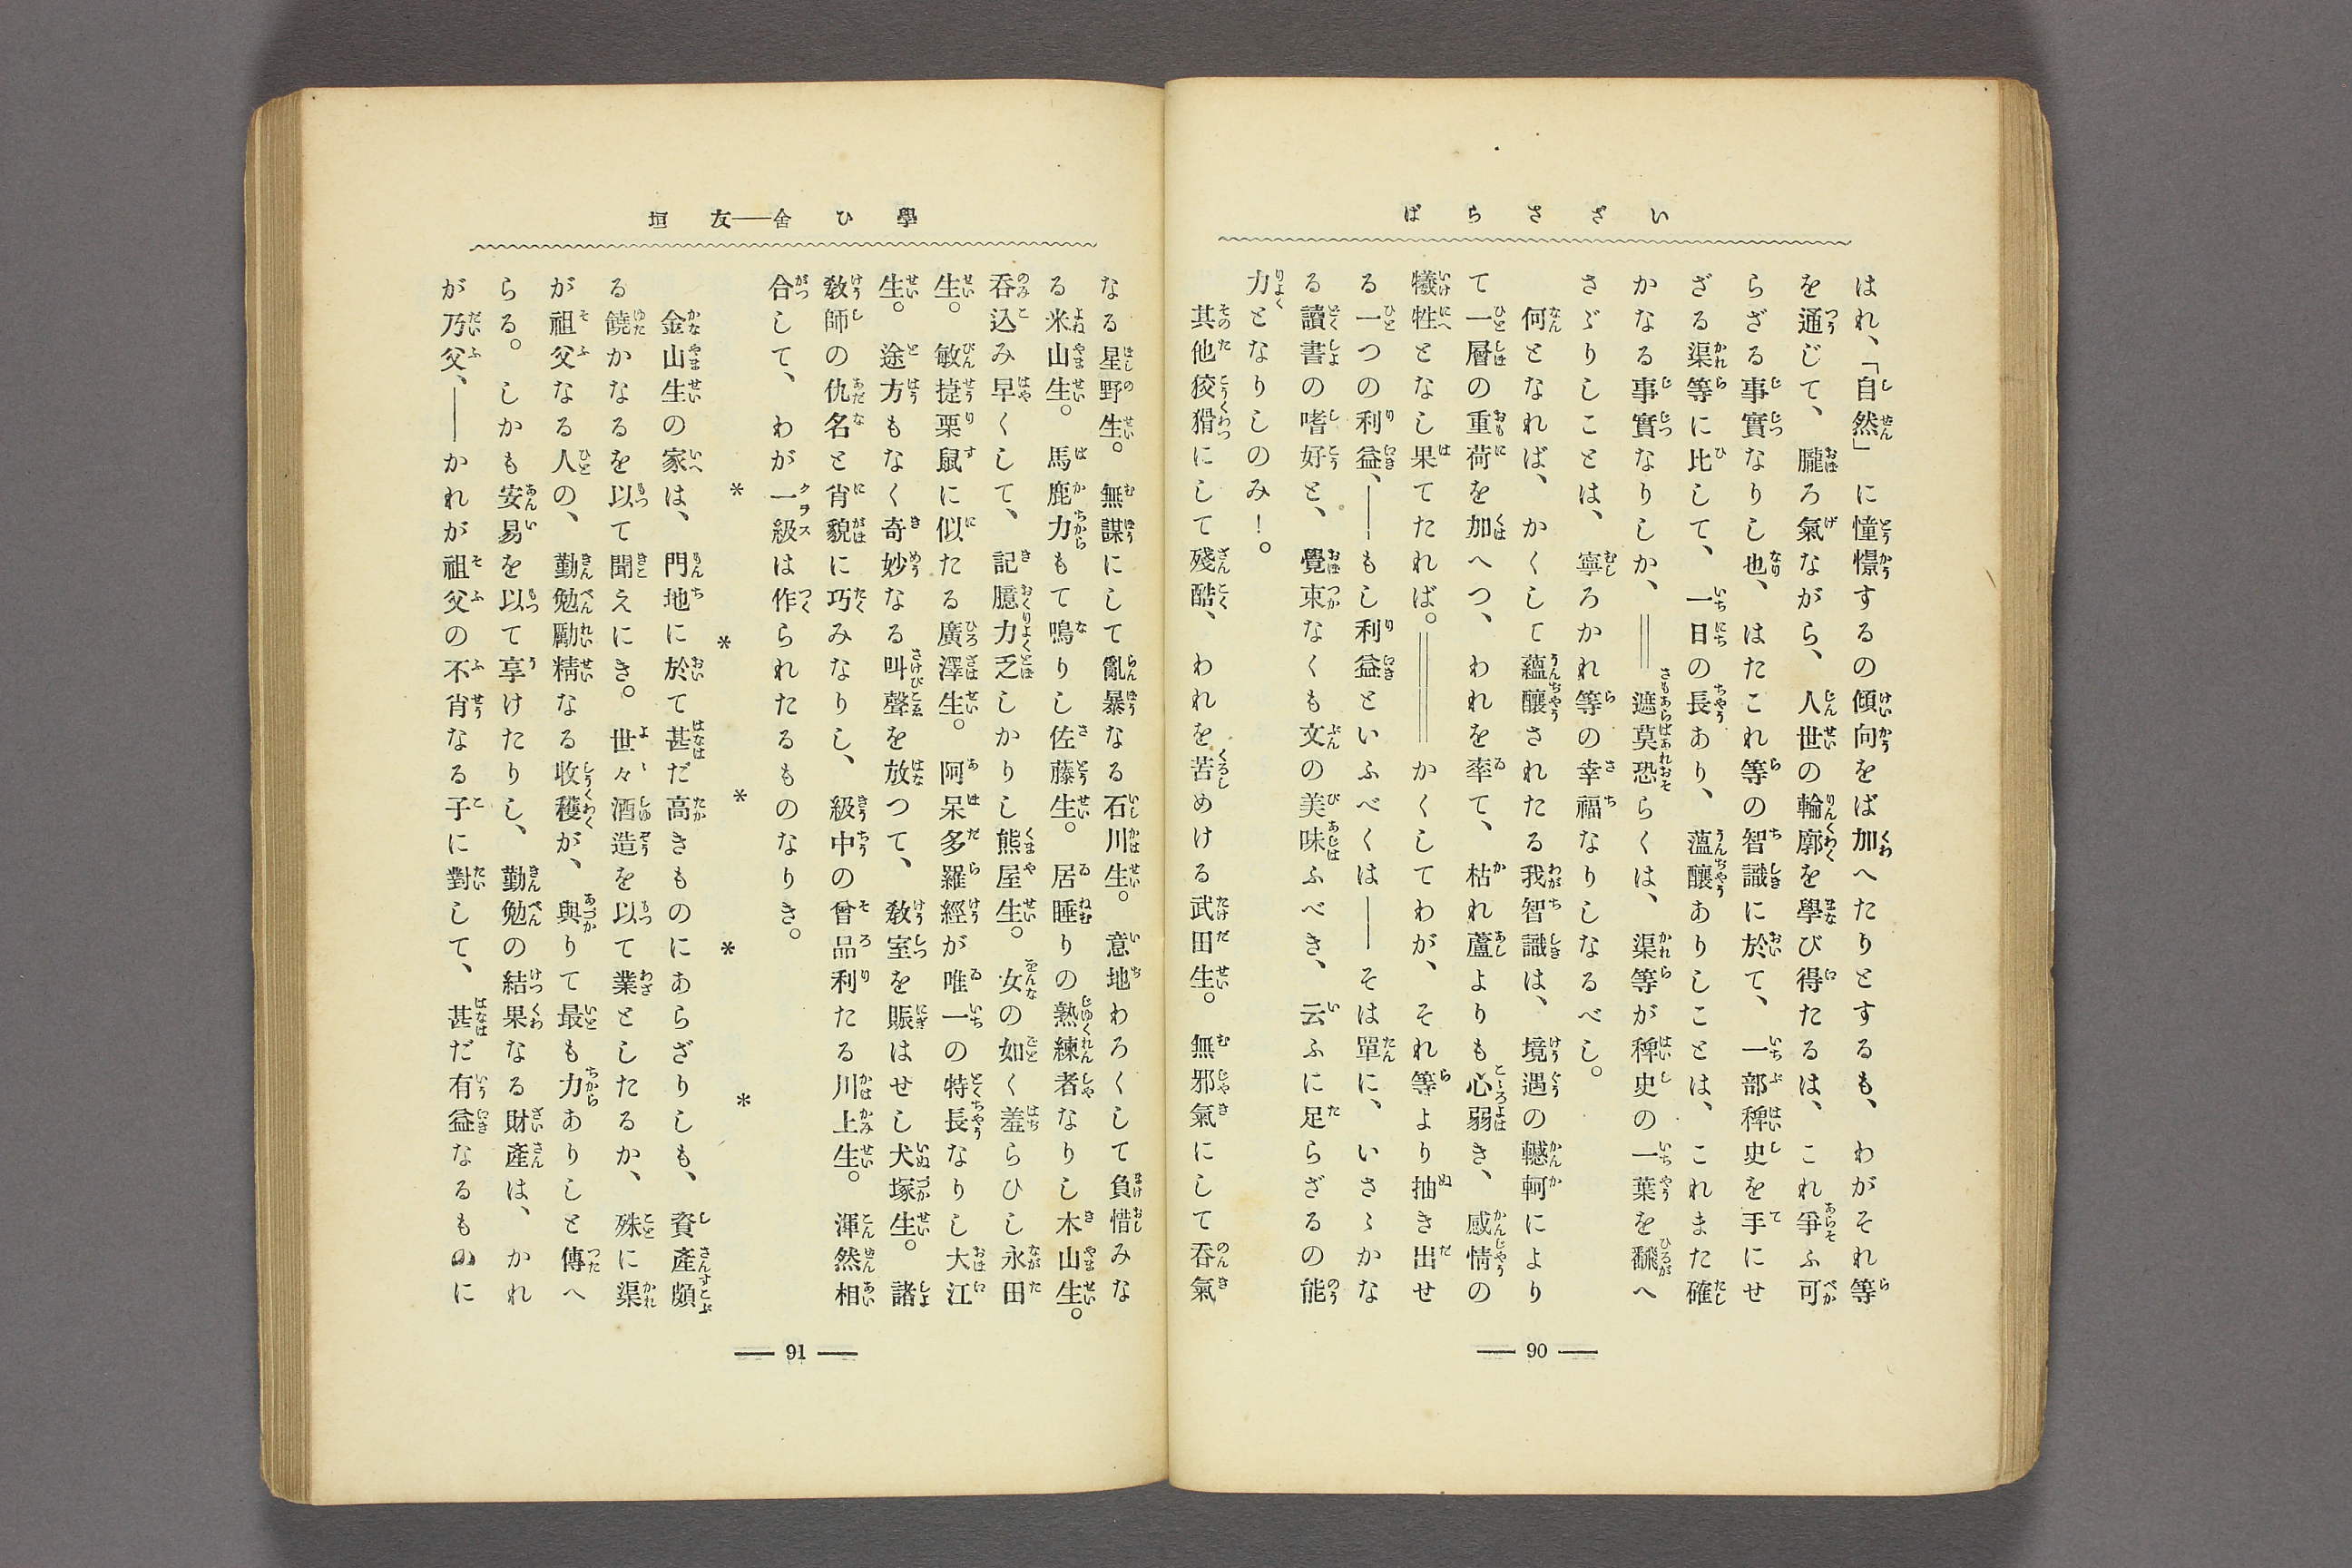 いざさらば
はれ、「自然」に憧憬するの傾向をば加へたりとするも、わがそれ等
を通じて、朧ろ氣ながら、人世の輪廓を學び得たるは、これ爭ふ可
らざる事實なりし也、はたこれ等の智識に於て、一部稗史を手にせ
ざる渠等に比して、一日の長あり、薀釀ありしことは、これまた確
かなる事實なりしか、＝＝遮莫恐らくは、渠等が稗史の一葉を飜へ
さゞりしことは、寧ろかれ等の幸福なりしなるべし。
何となれば、かくして蘊釀されたる我智識は、境遇の轗軻により
て一層の重荷を加へつ、われを率て、枯れ蘆よりも心弱き、感情の
犧牲となし果てたれば。＝＝＝かくしてわが、それ等より抽き出せ
る一つの利益、――もし利益といふべくは――そは單に、いさゝかな
る讀書の嗜好と、覺束なくも文の美味ふべき、云ふに足らざるの能
力となりしのみ！。
其他狡猾にして殘酷、われを苦めける武田生。無邪氣にして呑氣
― 90 ―
學ひ舍――友垣
なる星野生。無謀にして亂暴なる石川生。意地わろくして負惜みな
る米山生。馬鹿力もて鳴りし佐藤生。居睡りの熟練者なりし木山生。
呑込み早くして、記臆力乏しかりし熊屋生。女の如く羞らひし永田
生。敏捷栗鼠に似たる廣澤生。阿呆多羅經が唯一の特長なりし大江
生。途方もなく奇妙なる叫聲を放つて、敎室を賑はせし犬塚生。諸
敎師の仇名と肖貌に巧みなりし、級中の曾品利たる川上生。渾然相
合して、わが一級は作られたるものなりき。
＊　＊　＊　＊　＊
金山生の家は、門地に於て甚だ高きものにあらざりしも、資產頗
る饒かなるを以て聞えにき。世々酒造を以て業としたるか、殊に渠
が祖父なる人の、勤勉勵精なる收穫が、與りて最も力ありしと傳へ
らる。しかも安易を以て享けたりし、勤勉の結果なる財產は、かれ
が乃父、――かれが祖父の不肖なる子に對して、甚だ有益なるものに
― 91 ―